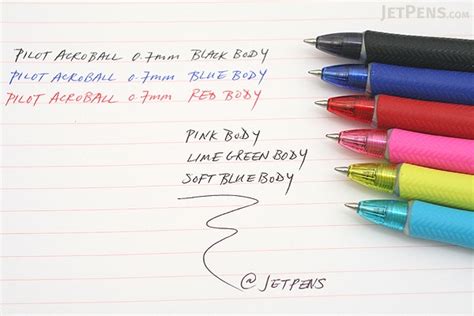 JetPens.com
PILOT ACROBALL 0.7mm BLACK BODY
PILOT ACROBALL 0.7mm BLUE BODY
PILOT ACROBALL 0.7mm RED BODY
PINK BODY
LIME GREEN BODY
SOFT BLUE BODY
@JETPENS